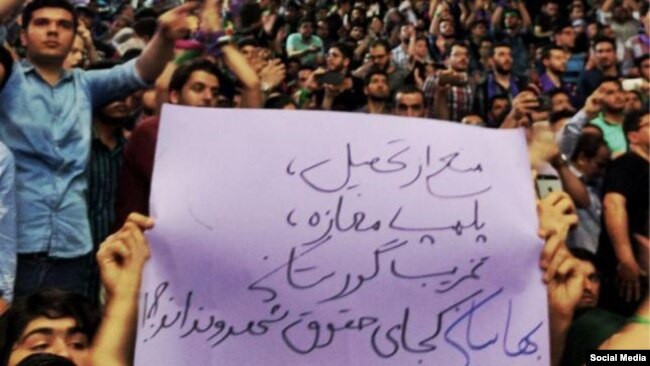 منع از تحصیل،
پلمپ مغازه،
تخریب گورستان
بهاییان کجای حقوق شهروندند؟!
Social Media